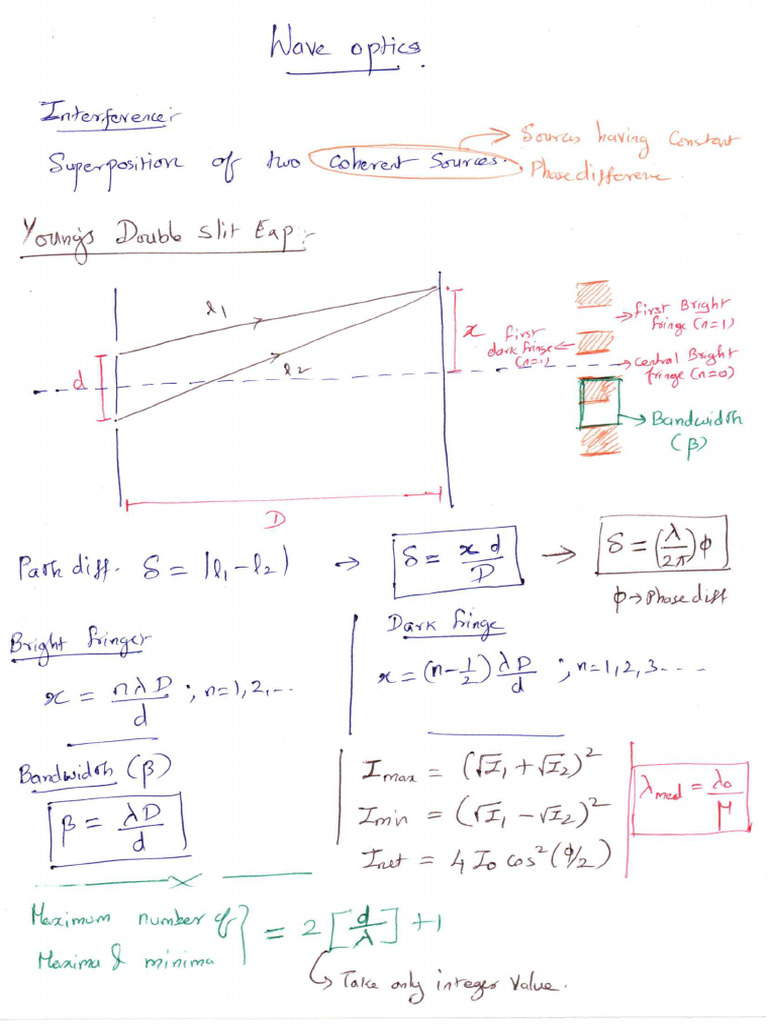 Wave optics.
Interference:-
Superposition of two Coherent Sources.
Sources having Constant
Phase difference.
Young's Double Slit Exp:-
l1
l2
d
D
x
first
dark fringe
(n=1)
first Bright
fringe (n=1)
Central Bright
fringe (n=0)
Bandwidth
(β)
Path diff. δ = |l1 - l2| → δ = x d / D → δ = (λ/2π) ϕ
ϕ → Phase diff
Bright fringe:-
x = nλD/d ; n=1,2,...
Dark fringe
x = (n-1/2) λD/d ; n=1,2,3....
Bandwidth (β)
β = λD/d
Imax = (√I1 + √I2)²
Imin = (√I1 - √I2)²
Inet = 4 I0 cos² (ϕ/2)
λmed = λ0/μ
Maximum number of
Maxima & minima } = 2 [d/λ] + 1
Take only integer Value.